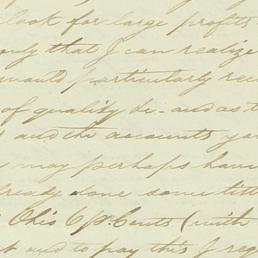 look for large profits
only that I can realize
would particularly rec
of quality &c. and as t
and the accounts yo
may perhaps have
already done some litt
Ohio 6 p. Cents (with
and to pay this I reg